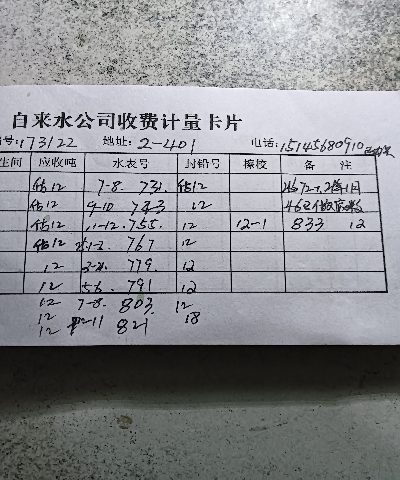 自来水公司收费计量卡片
号:173122 地址: 2-401 电话: 15145680910
生间 应收吨 水表号 封铅号 検校 备 注
估12 7-8. 731 估12
估12 9-10 743 12
估12 11-12 755. 12 12-1 833 12
估12 1-2. 767 12
12 3-4. 779. 12
12 5-6. 791 12
12 7-8. 803. 12
12 821 18
12